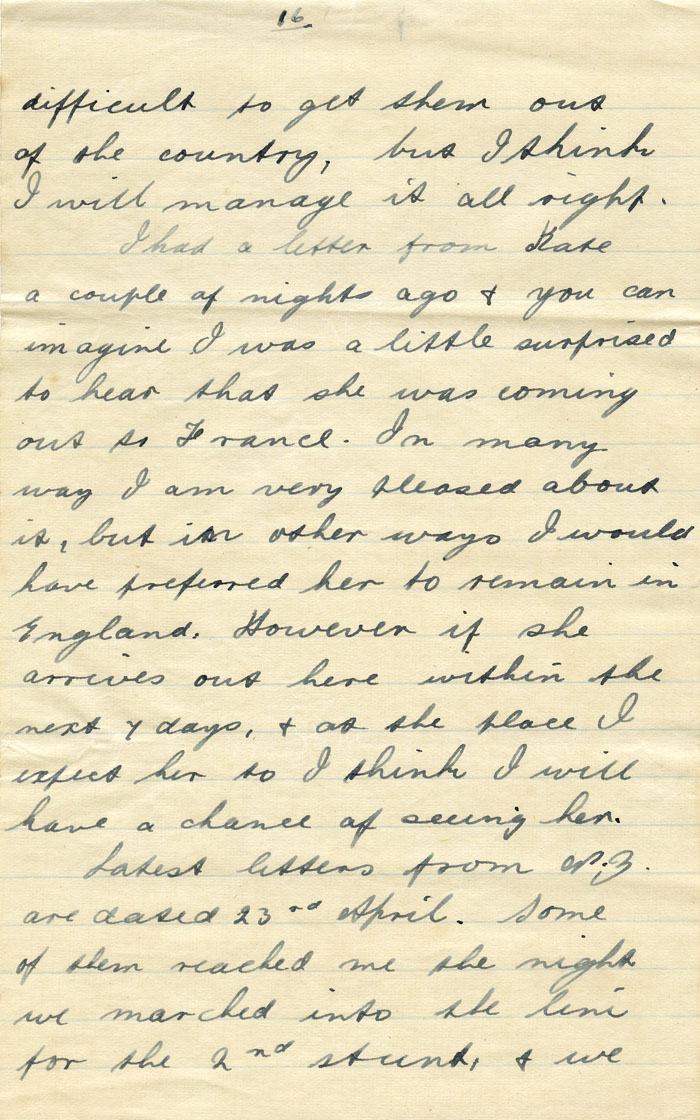 16.
difficult to get them out
of the country, but I think
I will manage it all right.
I had a letter from Kate
a couple of nights ago & you can
imagine I was a little surprised
to hear that she was coming
out to France. In many
way I am very pleased about
it, but in other ways I would
have preferred her to remain in
England. However if she
arrives out here within the
next 7 days, & at the place I
expect her to I think I will
have a chance of seeing her.
Latest letters from N.Z.
are dated 23rd April. Some
of them reached me the night
we marched into the line
for the 2nd stunt, & we